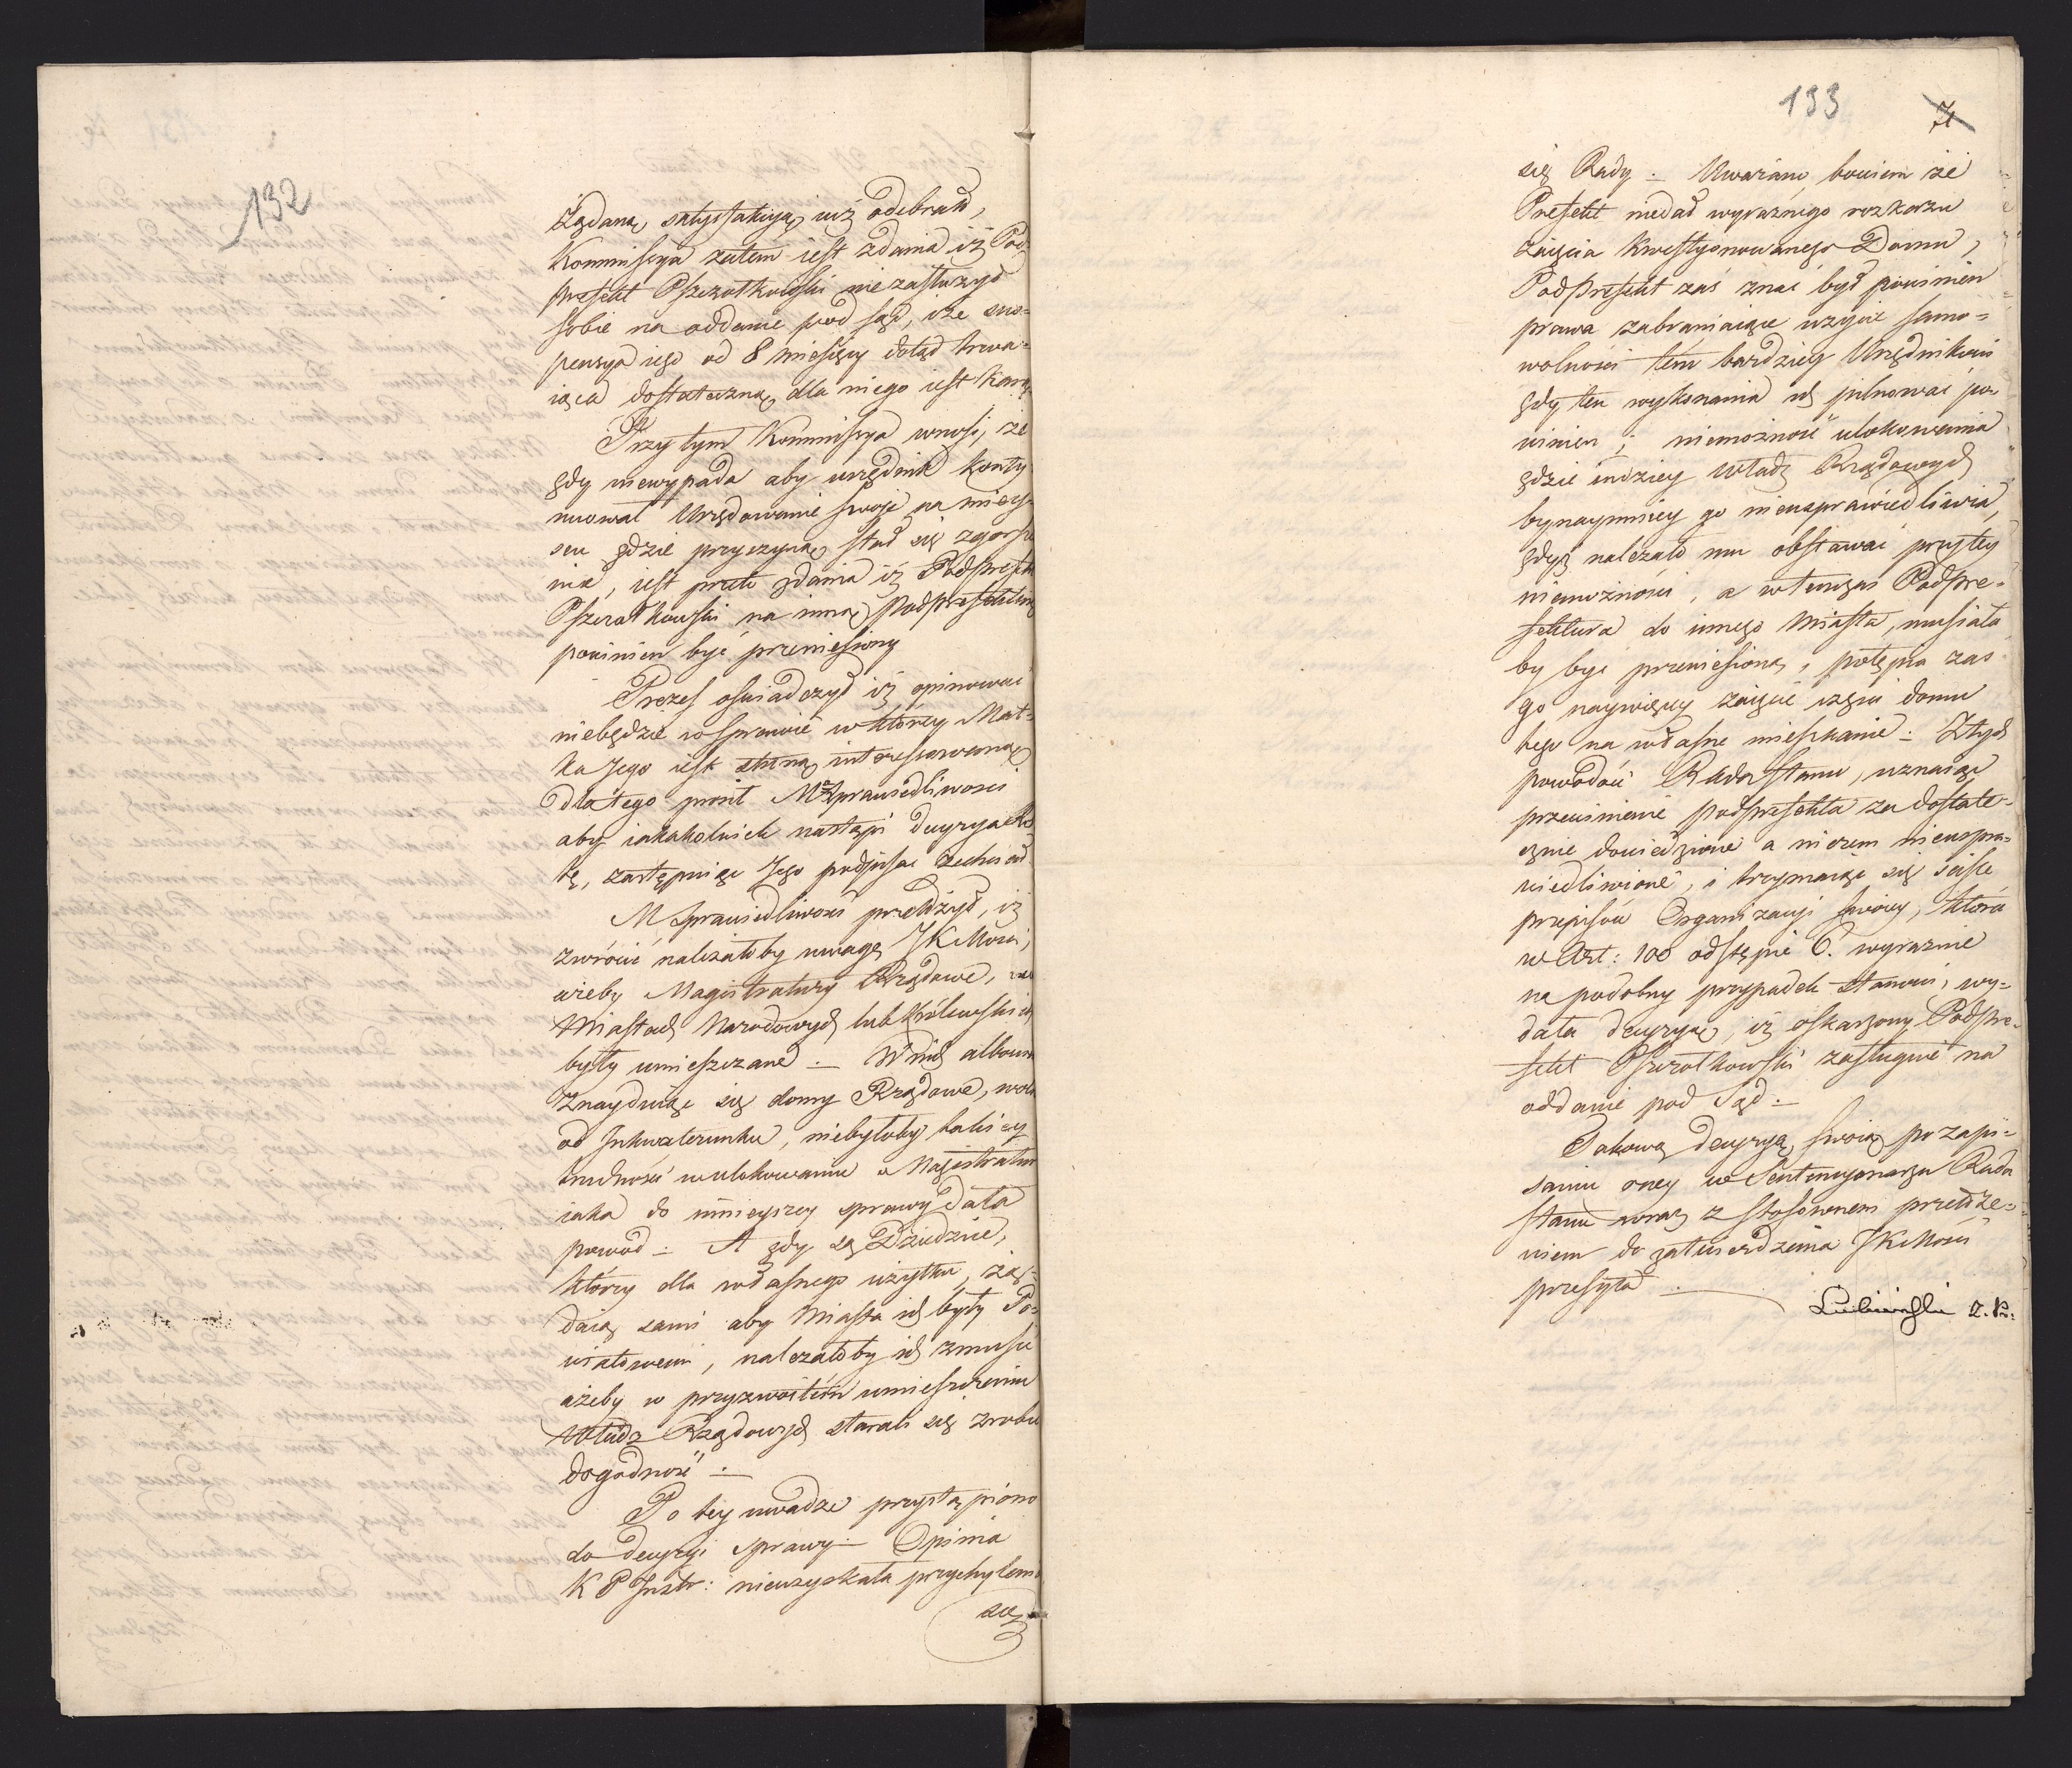 132
żądaną satysfakcyą iuż odebrał,
Kommissya zatem iest zdania iż Pod-
prefekt Pszczołkowski nie zasłużył
sobie na oddanie pod sąd, i że sus=
pensya iego od 8 miesięcy dotąd trwa=
iąca dostateczną dla niego iest karą
Przytym Kommissya wnosi, że
gdy niewypada aby urzędnik konty
nuował Urzędowanie swoje na miey-
scu gdzie przyczyną stał się zgorsze
nia, iest przeto zdania iż Podprefekt
Pszczołkowski na inną Podprefekturę
powinien być przeniesiony
Prezes oświadczył iż opinować
niebędzie w sprawie w którey Mat=
ka Jego iest stroną interesowaną
dla tego prosił Mra Sprawiedliwości
aby iakakolwiek nastąpi decyzya
tę, zastępuiąc Jego podpisać zechciał
M Sprawiedliwości przełożył, iż
zwrócić należałoby uwagę JKMości,
ażeby Magistratury Rządowe, w
Miastach Narodowych lub Królewskich
były umieszczane. — W nich albowiem
znayduiąc się domy Rządowe, wolne
od Inkwaterunku, niebyłoby takiey
trudności w ulokowaniu Magistratur
iaka do ninieyszey sprawy dała
powód — A gdy są Dziedzice,
którzy dla własnego użytku, żą=
daią sami aby Miasta ich były Po=
wiatowemi, należałoby ich zmusić
ażeby w przyzwoitem umieszczeniu
Władz Rządowych starali się zrobić
dogodność. —
Po tey uwadze przystąpiono
do decyzyi sprawy — Opinia
K P Instr: nieuzyskała przychylenia
się
133
7
się Rady. — Uważano, bowiem że
Prefekt niedał wyraźnego rozkazu
zaięcia kwestyonowanego Domu,
Podprefekt zaś znać był powinien
prawa zabraniaiące użycie samo=
wolności tém bardziey Urzędnikowi
gdy ten wykonania ich pilnować po-
winien; niemożność ulokowania
gdzie indziey Władz Rządowych
bynaymniey go nieusprawiedliwia,
gdyż należało mu obstawać przy tey
niemożności, a wtenczas Podpre=
fektura do innego Miasta, musiała
by być przeniesioną, potępia zaś
go naywięcey zaięcie części domu
tego na własne mieszkanie. — Z tych
powodów Rada Stanu, uznaiąc
przewinienie Podprefekta za dostate=
cznie dowiedzione a niczem nieuspra=
wiedliwione, i trzymaiąc się ściśle
przepisów Organizacyi swoiey, która
w Art: 100 odstępie 6. wyraźnie
na podobny przypadek stanowi, wy=
dała decyzyą, iż oskarżony Podpre=
fekt Pszczołkowski zasługuie na
oddanie pod Sąd. —
Takową decyzyą swoią po zapi=
saniu oney w Sentencyonarzu Rada
Stanu wraz z stosownem przełoże=
niem do zatwierdzenia JKMości
przesyła. —
Lubieński Z. Pr: